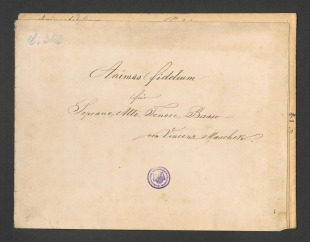 Animas fidelium
für
Soprano, Alto, Tenore, Basso
von Vincenz Maschek.